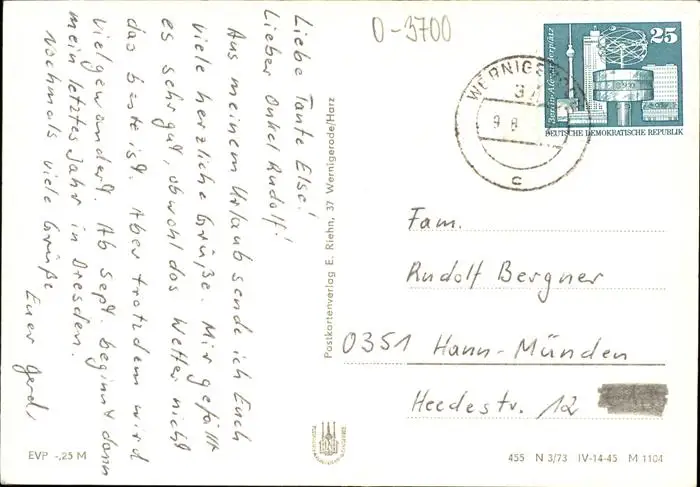 Liebe Tante Else!
Lieber Onkel Rudolf!
Aus meinem Urlaub sende ich Euch
viele herzliche Grüße. Mir gefällt
es sehr gut, obwohl das Wetter nicht
das beste ist. Aber trotzdem wird
viel gewandert. Ab Sept. beginnt dann
mein letztes Jahr in Dresden.
Nochmals viele Grüße
Euer Gerd
EVP -,25 M
Postkartenverlag E. Riehn, 37 Wernigerode/Harz
0-3700
WERNIGE
37
9.8
c
Berlin-Alexanderplatz
25
DEUTSCHE DEMOKRATISCHE REPUBLIK
Fam.
Rudolf Bergner
0351 Hann-Münden
Heedestr. 12
455 N 3/73 IV-14-45 M 1104